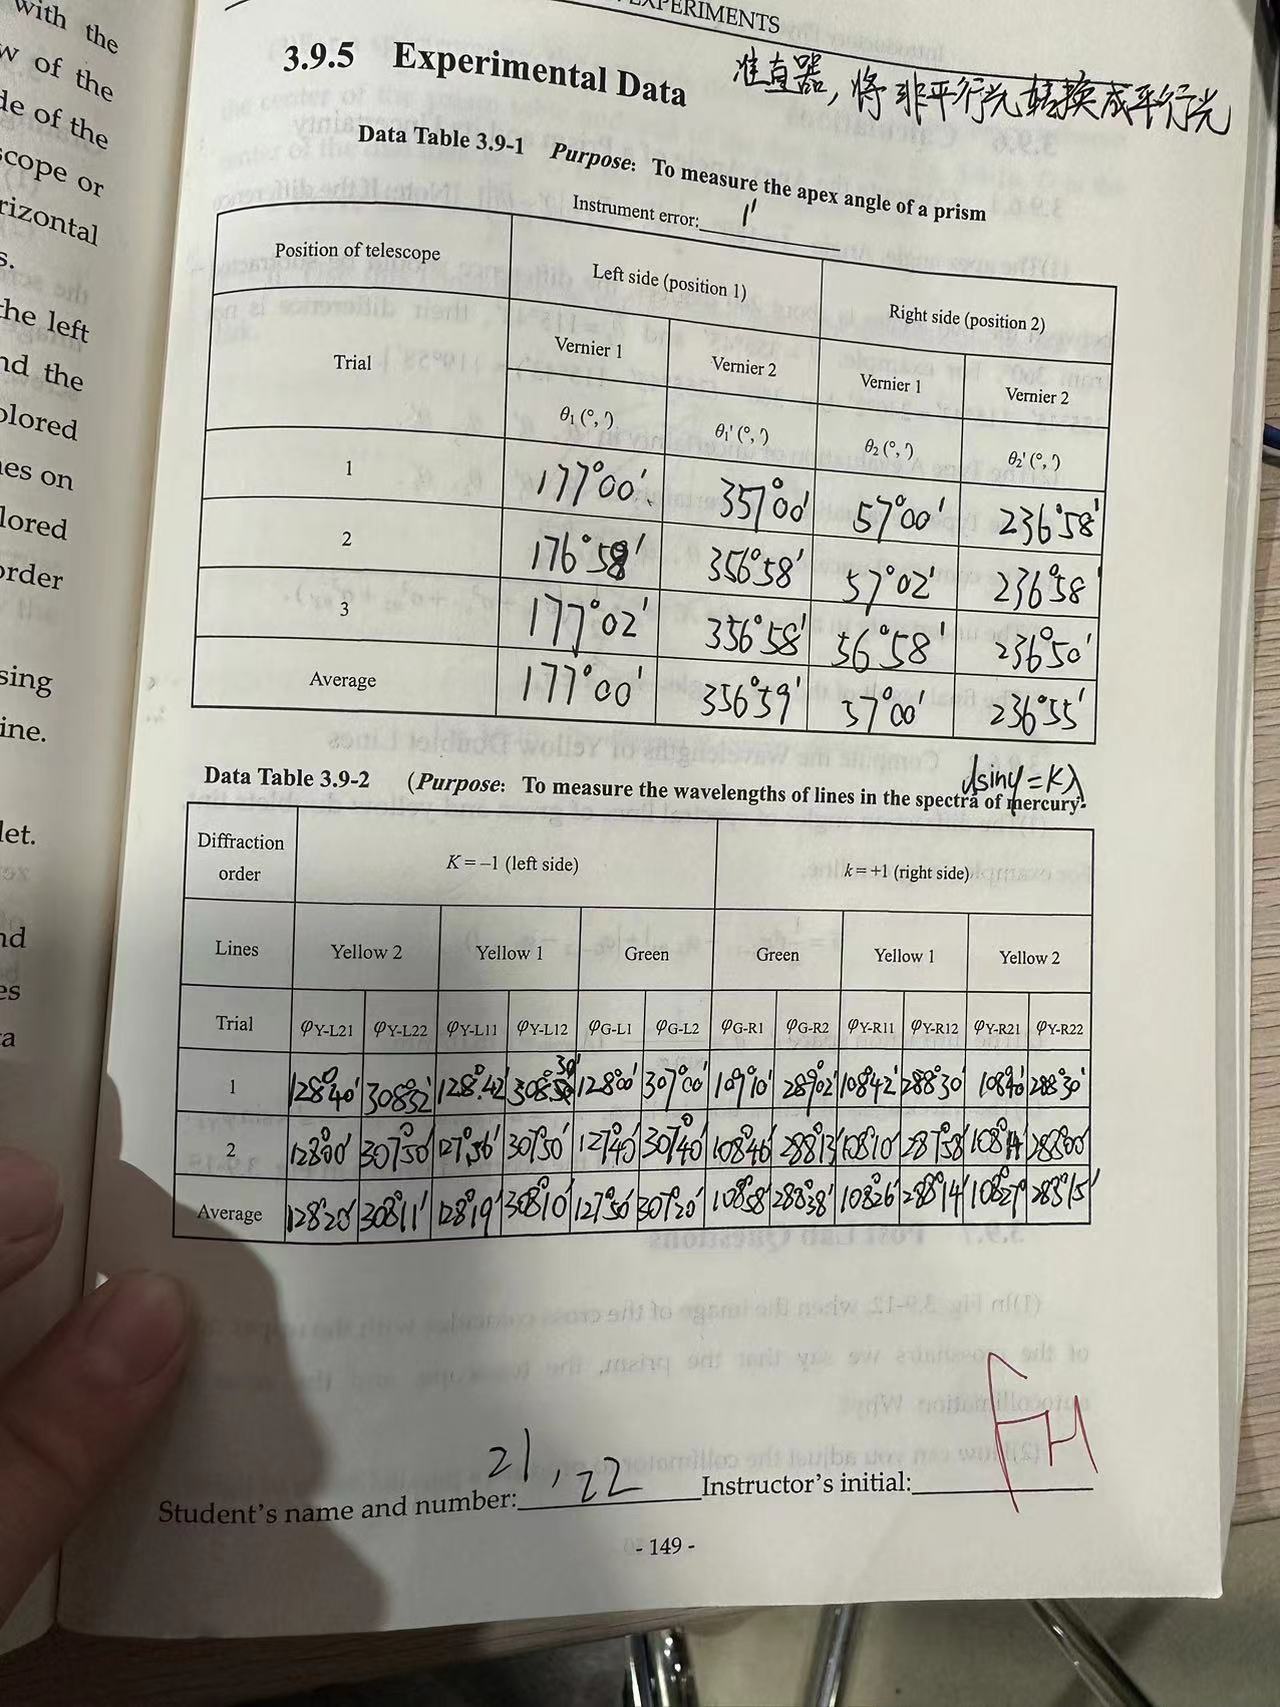 with the
w of the
de of the
scope or
rizontal
s.
the left
nd the
olored
nes on
lored
order
sing
ine.
let.
nd
es
a
EXPERIMENTS
3.9.5 Experimental Data
准直器，将非平行光转换成平行光
Data Table 3.9-1 Purpose: To measure the apex angle of a prism
Instrument error: 1'
Position of telescope Left side (position 1) Right side (position 2)
Trial Vernier 1 Vernier 2 Vernier 1 Vernier 2
θ₁ (°, ′) θ₁′ (°, ′) θ₂ (°, ′) θ₂′ (°, ′)
1 177°00' 357°00' 57°00' 236°58'
2 176°58' 356°58' 57°02' 236°58'
3 177°02' 356°58' 56°58' 236°50'
Average 177°00' 356°59' 57°00' 236°55'
dsinφ=Kλ
Data Table 3.9-2 (Purpose: To measure the wavelengths of lines in the spectra of mercury.
Diffraction order K = −1 (left side) k = +1 (right side)
Lines Yellow 2 Yellow 1 Green Green Yellow 1 Yellow 2
Trial φY-L21 φY-L22 φY-L11 φY-L12 φG-L1 φG-L2 φG-R1 φG-R2 φY-R11 φY-R12 φY-R21 φY-R22
1 128°40' 308°32' 128°42' 308°30' 128°00' 307°00' 109°10' 289°02' 108°42' 288°30' 108°40' 288°30'
2 128°00' 307°50' 127°56' 307°50' 127°40' 307°40' 108°46' 288°13' 108°10' 287°58' 108°14' 288°00'
Average 128°20' 308°11' 128°19' 308°10' 127°50' 307°20' 108°58' 288°38' 108°26' 288°14' 108°27' 288°15'
Student's name and number: 21, 22 Instructor's initial: FH
- 149 -